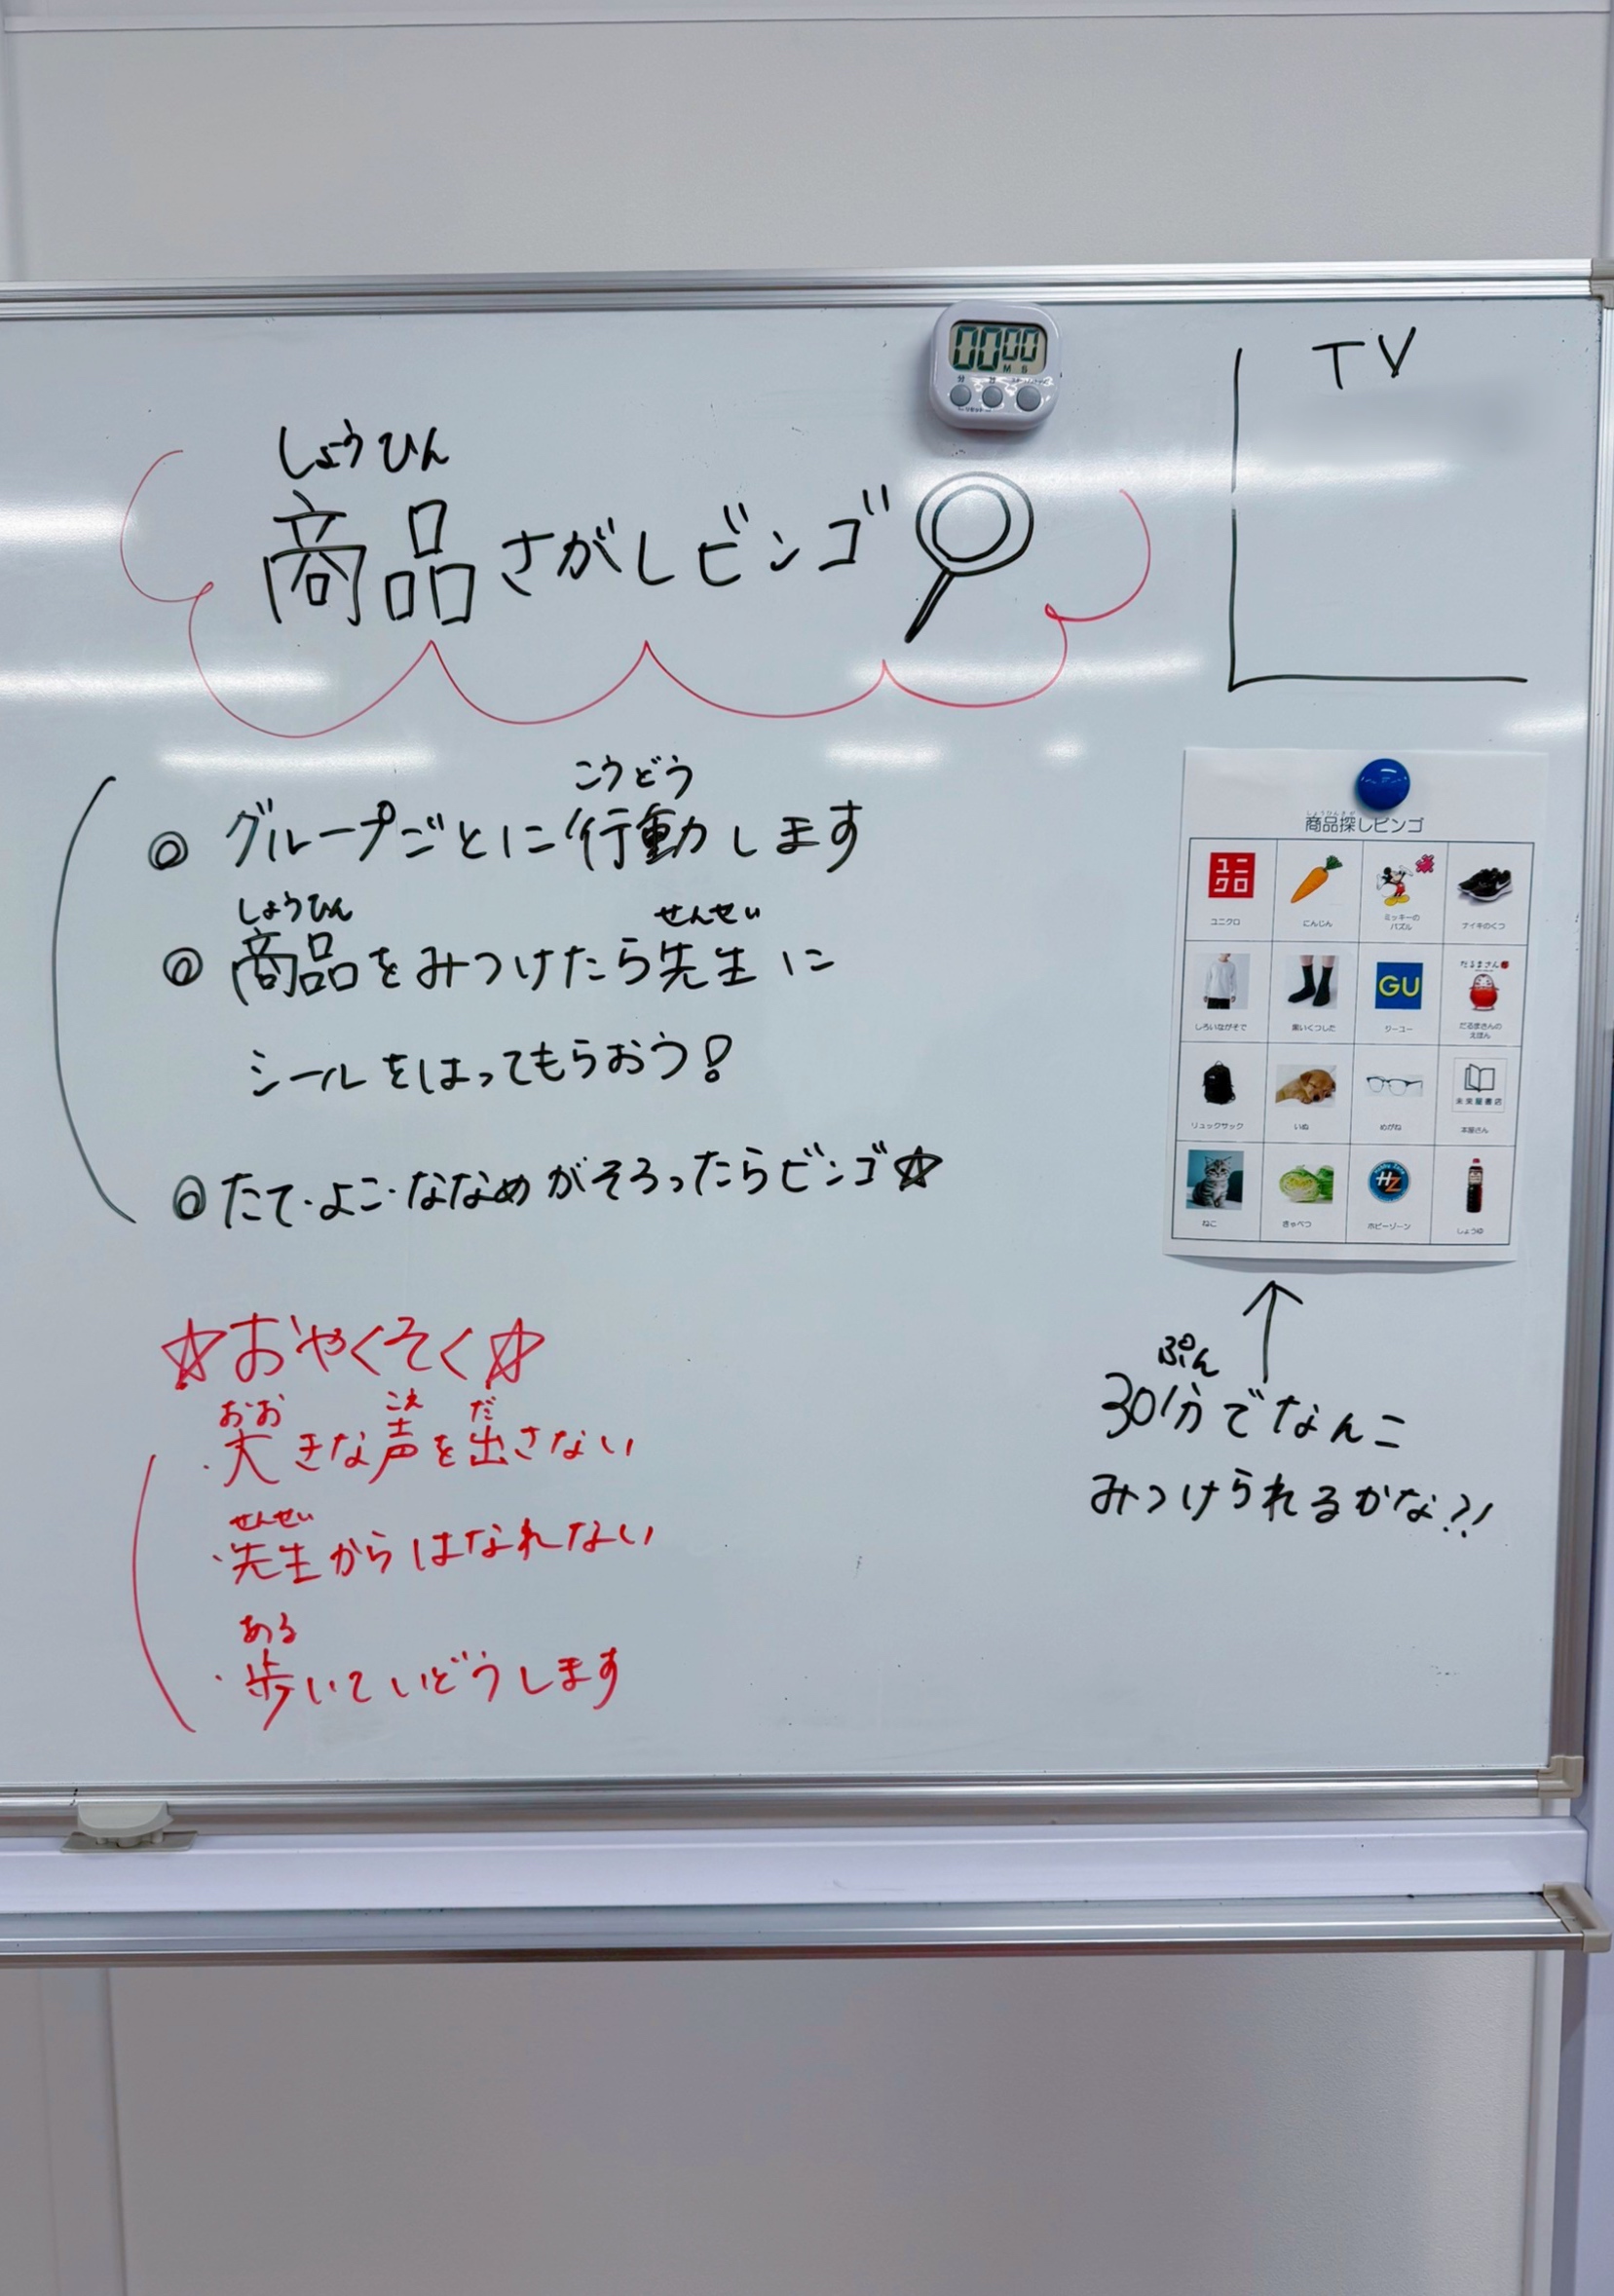 00 00
M S
TV
しょうひん
商品さがしビンゴ
こうどう
◎ グループごとに行動します
しょうひん せんせい
◎ 商品をみつけたら先生に
シールをはってもらおう!
◎ たて・よこ・ななめがそろったらビンゴ☆
☆おやくそく☆
おお こえ だ
・大きな声を出さない
せんせい
・先生からはなれない
ある
・歩いていどうします
商品探しビンゴ
ユニクロ
ユニクロ にんじん ミッキーの パズル ナイキのくつ
GU だるまさん
しろいながそで 黒いくつした ジーユー だるまさんの えほん
未来屋書店
リュックサック いぬ めがね 本屋さん
HZ
ねこ きゃべつ ホビーゾーン しょうゆ
ぷん
30分でなんこ
みつけられるかな?!